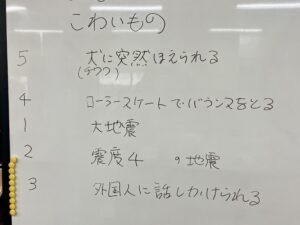 こわいもの
5 犬に突然ほえられる
(チワワ)
4 ローラースケートでバウンスをとる
1 大地震
2 震度4の地震
3 外国人に話しかけられる